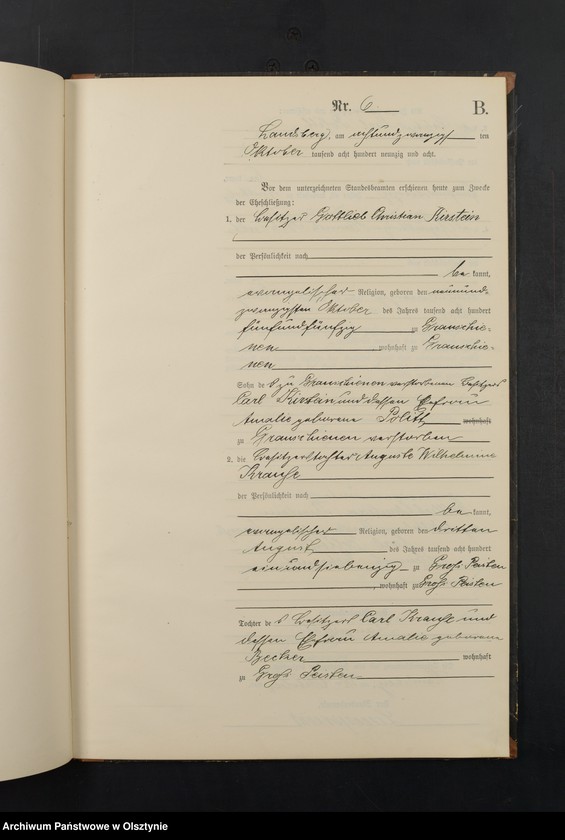 Nr. 6
B.
Landsberg, am achtundzwanzigsten
Oktober tausend acht hundert neunzig und acht.
Vor dem unterzeichneten Standesbeamten erschienen heute zum Zwecke
der Eheschließung:
1. der Besitzer Gottlieb Christian Kirstein
der Persönlichkeit nach
be kannt,
evangelischer Religion, geboren den neunund-
zwanzigsten Oktober des Jahres tausend acht hundert
fünfundfünfzig zu Grauschie-
nen wohnhaft zu Grauschie-
nen
Sohn des zu Grauschienen verstorbenen Besitzers
Carl Kirstein und dessen Ehefrau
Amalie geborene Politt wohnhaft
zu Grauschienen verstorben
2. die Besitzertochter Auguste Wilhelmine
Krause
der Persönlichkeit nach
be kannt,
evangelischer Religion, geboren den dritten
August des Jahres tausend acht hundert
einundsiebenzig zu Groß Peisten
, wohnhaft zu Groß Peisten
Tochter des Besitzers Carl Krause und
dessen Ehefrau Amalie geborene
wohnhaft
zu Groß Peisten
Archiwum Państwowe w Olsztynie